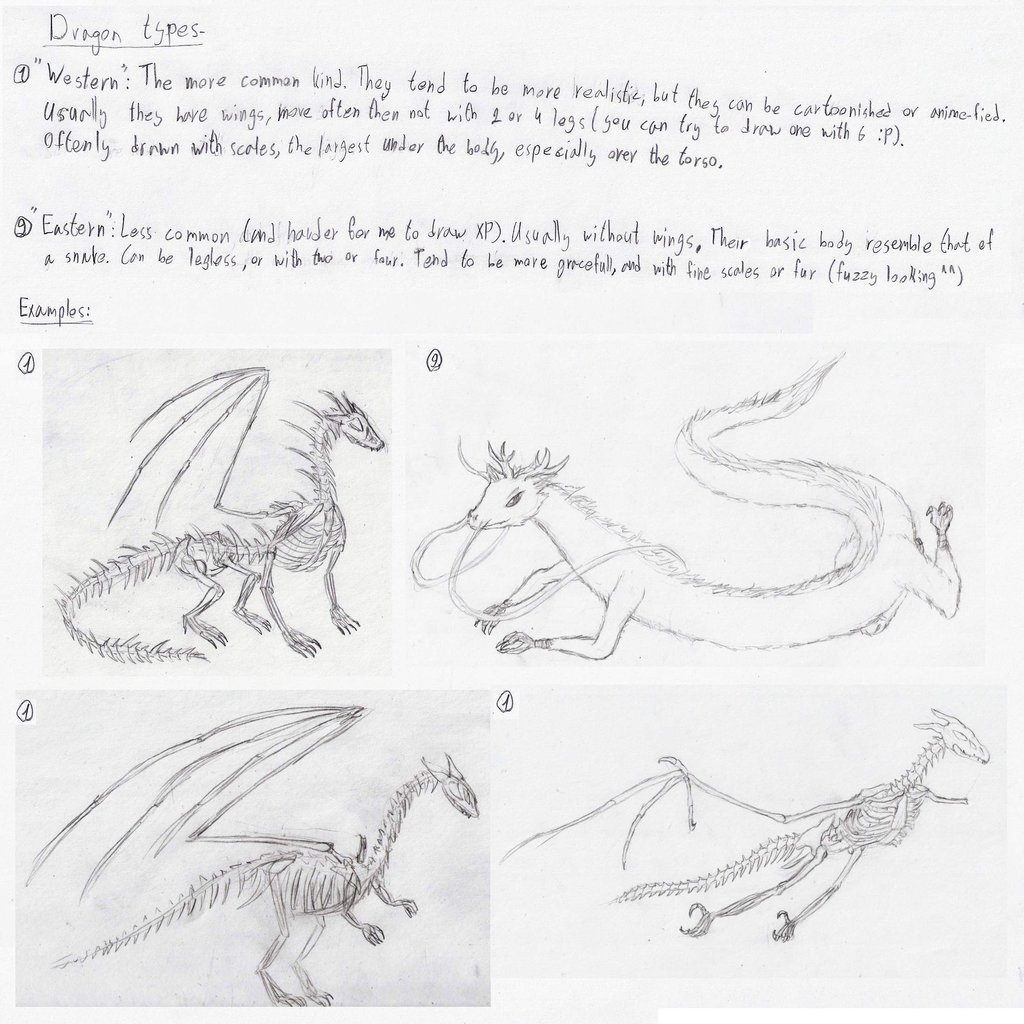 Dragon types-
① "Western": The more common kind. They tend to be more realistic, but they can be cartoonished or anime-fied.
Usually they have wings, more often then not with 2 or 4 legs (you can try to draw one with 6 :P).
Oftenly drawn with scales, the largest under the body, especially over the torso.
② "Eastern": Less common (and harder for me to draw XP). Usually without wings, Their basic body resemble that of
a snake. Can be legless, or with two or four. Tend to be more gracefull, and with fine scales or fur (fuzzy looking ^^)
Examples:
①
②
①
①